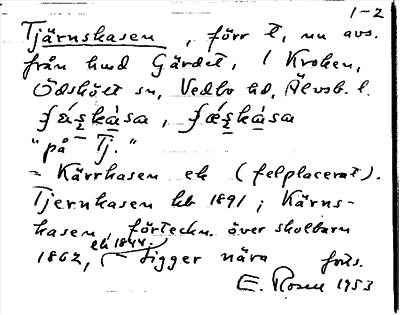 1-2
Tjärnskasen, förr t, nu avs.
från hmd Gärdet, 1 Kroken,
Ödskölt sn, Vedbo hd, Älvsb. l.
"på Tj."
= Kärrhasen ek (felplacerat).
Tjernkasen hb 1891; Kärns-
kasen, förteckn. över skolbarn
1862, ek 1844. Ligger nära forts.
E. Rosen 1953